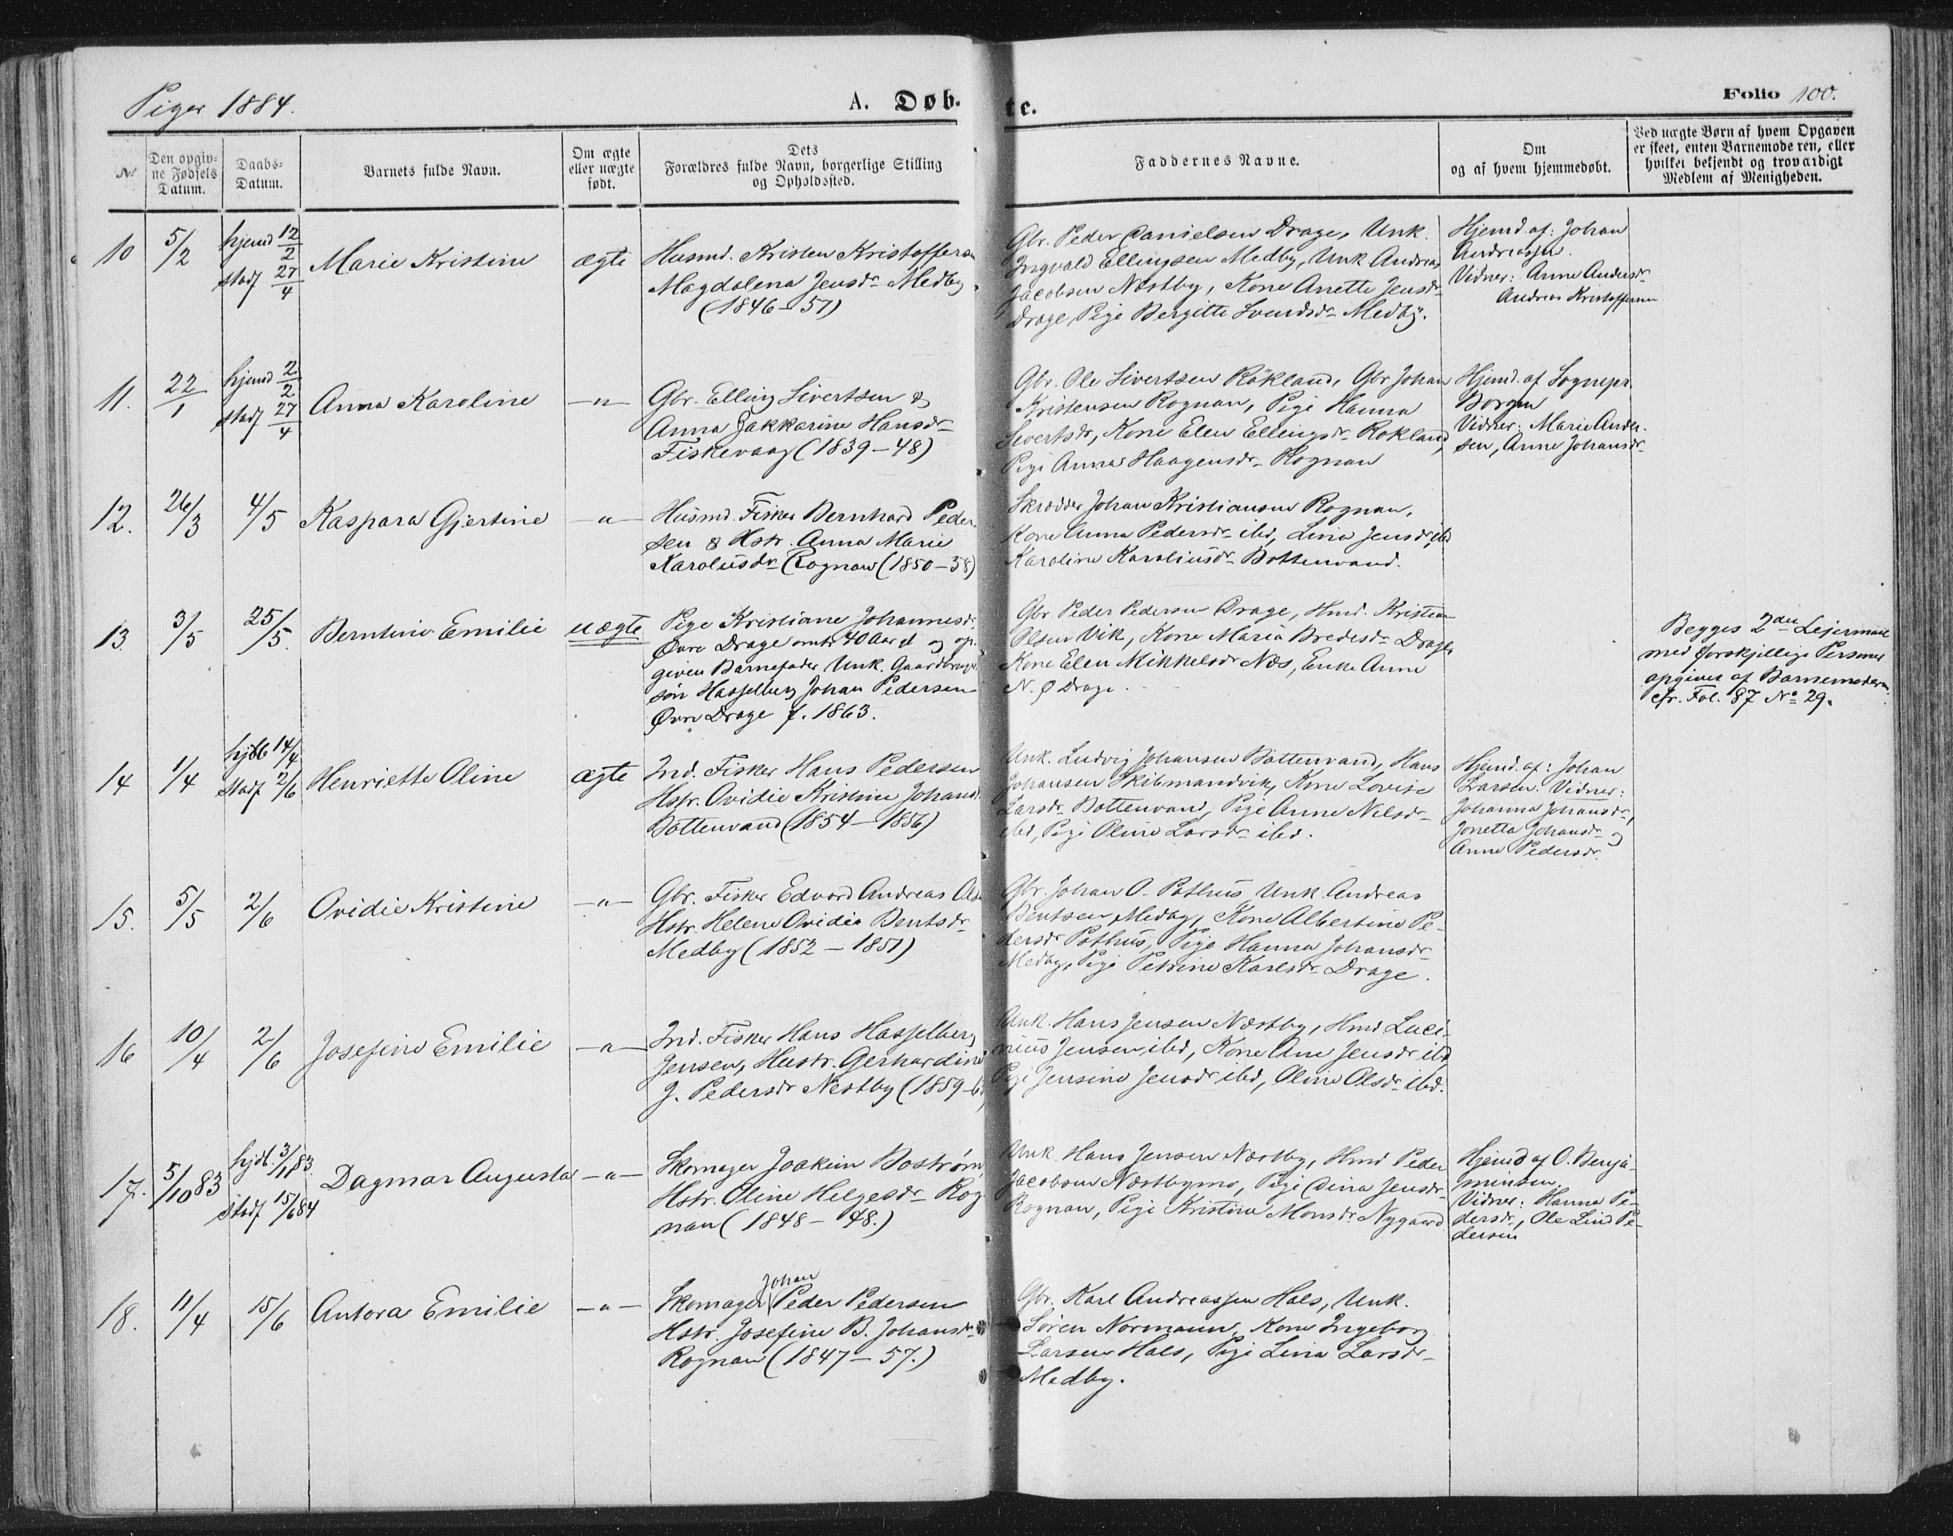 Piger 1884.
A. Døb-
te.
Folio 100.
No
Den opgiv-
ne Fødsels
Datum.
Daabs-
Datum.
Barnets fulde Navn.
Om ægte
eller uægte
født.
Dets
Forældres fulde Navn, borgerlige Stilling
og Opholdssted.
Faddernes Navne.
Om
og af hvem hjemmedøbt.
Ved uægte Børn af hvem Opgaven
er skeet, enten Barnemoderen, eller
hvilket bekjendt og troværdigt
Medlem af Menigheden.
10
5/2
hjemd 12/2
stadf 27/4
Marie Kristine
ægte
Husmd. Kristen Kristoffersen
Magdalena Jensdr Medby
(1846 – 57)
Gbr. Peder Danielsen Drage, Unk.
Ingvald Ellingsen Medby, Unk Andreas
Jacobsen Nestby, Kone Anette Jensdr
Drage, Pige Bergitte Svendsdr Medby.
Hjemd. af: Johan
Andreassen.
Vidner: Anne Andersdr
Andreas Kristoffersen
11.
22/1
hjemd 2/2
stadf 27/4
Anna Karoline
–„–
Gbr. Elling Sivertsen &
Anna Jakkarine Hansdr
Fiskevaag (1839 – 48)
Gbr. Ole Sivertsen Røkland, Gbr Johan
Kristensen Rognan, Pige Hanna
Sivertsdr, Kone Elen Ellingsdr Rokland,
Pige Anna Haagensdr Rognan
Hjemd. af Sognepr.
Borgen
Vidner: Marie Ander-
sen, Anne Johansdr
12.
26/3
4/5
Kaspara Gjertine
–„–
Husmd. Fisker Bernhard Peder-
sen & Hstr. Anna Marie
Karolusdr Rognan (1850 – 58)
Skrædder Johan Kristiansen Rognan,
Kone Anna Pedersdr ibd, Lina Jensdr ibd
Karoline Karoliusdr Bottenvand.
13.
3/5
25/5.
Berntine Emilie
uægte
Pige Kristiane Johannesdr
Øvre Drage omtr 40 Aar gl og op-
given Barnefader Unk. Gaardbruger-
søn Hasselberg Johan Pedersen
Øvre Drage f. 1863.
Gbr. Peder Pedersen Drage, Hmd. Kristian
Olsen Vik, Kone Maria Bredesdr Drage,
Kone Elen Mikkelsdr Næs, Enke Anne
N. Ø Drage.
Begges 2den Leiermaal
med forskjellige Personer
opgivet af Barnemoderen
cfr. Fol. 87 No 29.
14
1/4
hjdb 14/4
Stadf 2/6
Henriette Oline
ægte
Ind. Fisker Hans Pedersen
Hstr. Ovidie Kristine Johansdr
Bottenvand (1854 – 1856)
Unk. Ludvig Johansen Bottenvand, Hans
Johansen Skibmandvik, Kone Lovise
Larsdr Bottenvand, Pige Anne Nilsdr
ibd, Pige Oline Larsdr ibd.
Hjemd. af: Johan
Larsen. Vidner:
Johanna Johansdr,
Jonetta Johansdr og
Anne Pedersdr.
15.
5/5
2/6
Ovidie Kristine
–„–
Gbr. Fisker Edvard Andreas Ols
Hstr. Helene Ovidia Bentsdr
Medby (1852 – 1851)
Gbr. Johan O. Pothus, Unk. Andreas
Bentsen Medby, Kone Albertine Pe-
dersdr Pothus, Pige Hanna Johansdr
Medby, Pige Petrine Karlsdr Drage.
16
10/4
2/6
Josefine Emilie
–„–
Ind. Fisker Hans Hasselberg
Jensen, Hustr. Gerhardine
J. Pedersdr Nestby (1859 –
Unk. Hans Jensen Nestby, Hmd Luci-
nius Jensen ibd, Kone Ane Jensdr ibd,
Pige Jensine Jensdr ibd, Oline Olsdr ibd.
17.
5/10 83
hjdb. 3/11 83.
Stadf 15/6 84
Dagmar Augusta
–„–
Skomager Joakim Bostrøm,
Hstr. Oline Helgesdr Rog
nan (1848 – 48.)
Unk. Hans Jensen Nestby, Hmd Peder
Jacobsen Nestbymo, Pige Dina Jensdr
Rognan, Pige Kristine Monsdr Nygaard
Hjemd af O. Benja-
minsen.
Vidner: Hanna Pe-
dersdr, Ole Lind Pe-
dersen
18.
11/4
15/6
Antora Emilie
–„–
Johan
Skomager Peder Pedersen
Hstr. Josefine B. Johansdr
Rognan (1847 – 57.)
Gbr. Karl Andreassen Hals, Unk.
Søren Normann, Kone Ingeborg
Larsen Hals, Pige Lina Larsdr
Medby.